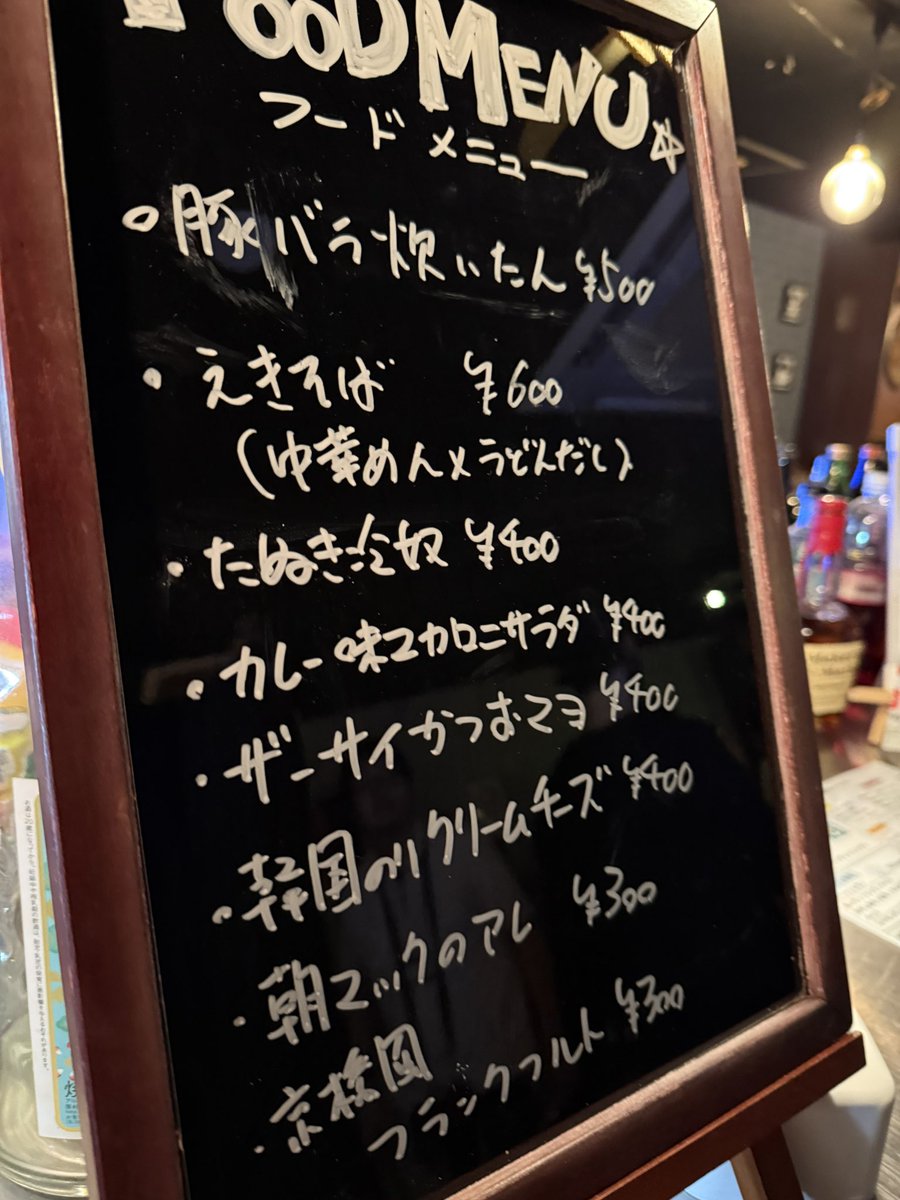 FOOD MENU
フードメニュー
豚バラ炊いたん ¥500
えきそば ¥600
(中華めん×うどんだし)
たぬき冷奴 ¥400
カレー味マカロニサラダ ¥400
ザーサイかつおマヨ ¥400
韓国のりクリームチーズ ¥400
朝マックのアレ ¥300
京橋園
フランクフルト ¥300